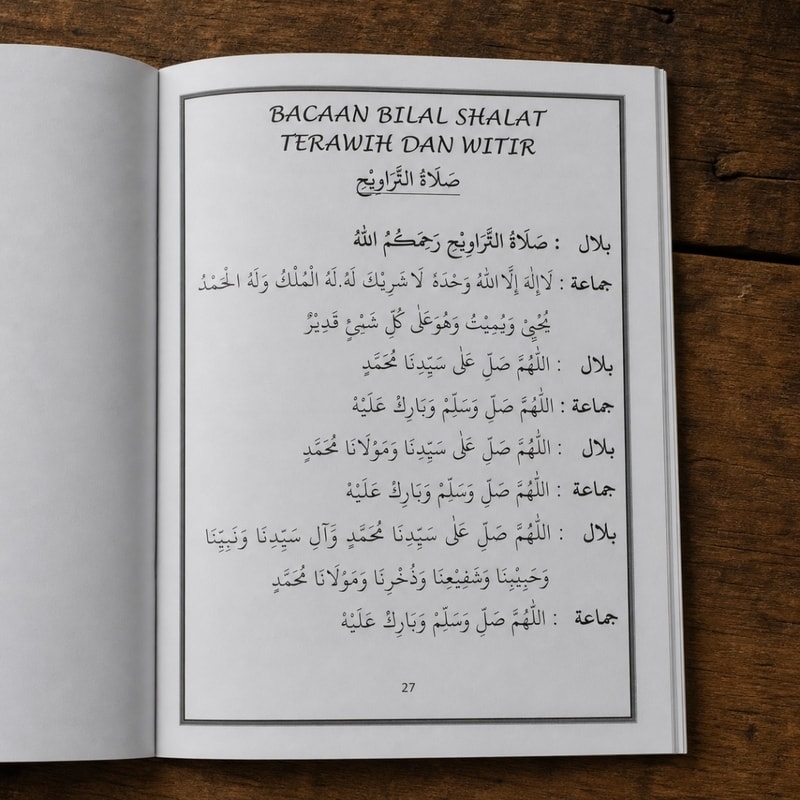 BACAAN BILAL SHALAT
TERAWIH DAN WITIR
صَلَاةُ التَّرَاوِيْحِ
بلال : صَلَاةُ التَّرَاوِيْحِ رَحِمَكُمُ اللهُ
جماعة : لَاإِلٰهَ إِلَّااللهُ وَحْدَهُ لَاشَرِيْكَ لَهُ.لَهُ الْمُلْكُ وَلَهُ الْحَمْدُ
يُحْيِيْ وَيُمِيْتُ وَهُوَعَلٰى كُلِّ شَيْئٍ قَدِيْرٌ
بلال : اَللّٰهُمَّ صَلِّ عَلٰى سَيِّدِنَا مُحَمَّدٍ
جماعة : اَللّٰهُمَّ صَلِّ وَسَلِّمْ وَبَارِكْ عَلَيْهْ
بلال : اَللّٰهُمَّ صَلِّ عَلٰى سَيِّدِنَا وَمَوْلَانَا مُحَمَّدٍ
جماعة : اَللّٰهُمَّ صَلِّ وَسَلِّمْ وَبَارِكْ عَلَيْهْ
بلال : اَللّٰهُمَّ صَلِّ عَلٰى سَيِّدِنَا مُحَمَّدٍ وَّآلِ سَيِّدِنَا وَنَبِيِّنَا
وَحَبِيْبِنَا وَشَفِيْعِنَا وَذُخْرِنَا وَمَوْلَانَا مُحَمَّدٍ
جماعة : اَللّٰهُمَّ صَلِّ وَسَلِّمْ وَبَارِكْ عَلَيْهْ
27